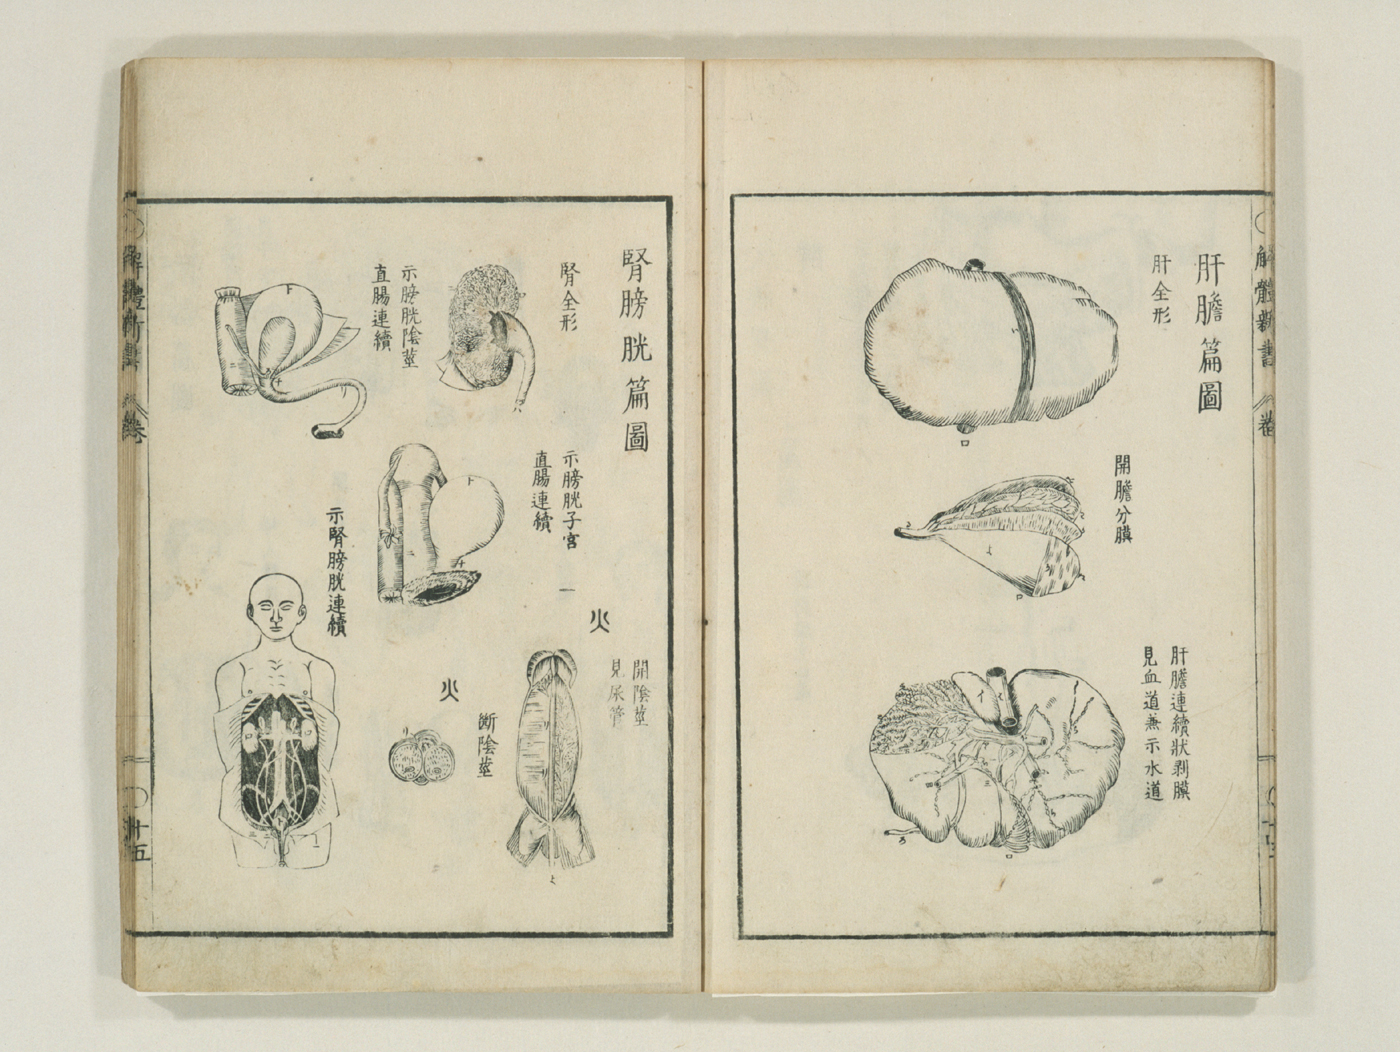 肝膽篇圖
肝全形
開膽分膜
肝膽連續狀剥膜
見血道兼示水道
解體新書
卷
腎膀胱篇圖
腎全形
示膀胱陰莖
直腸連續
示膀胱子宮
直腸連續
示腎膀胱連續
火
開陰莖
見尿管
火
斷陰莖
解體新書
卷
十五